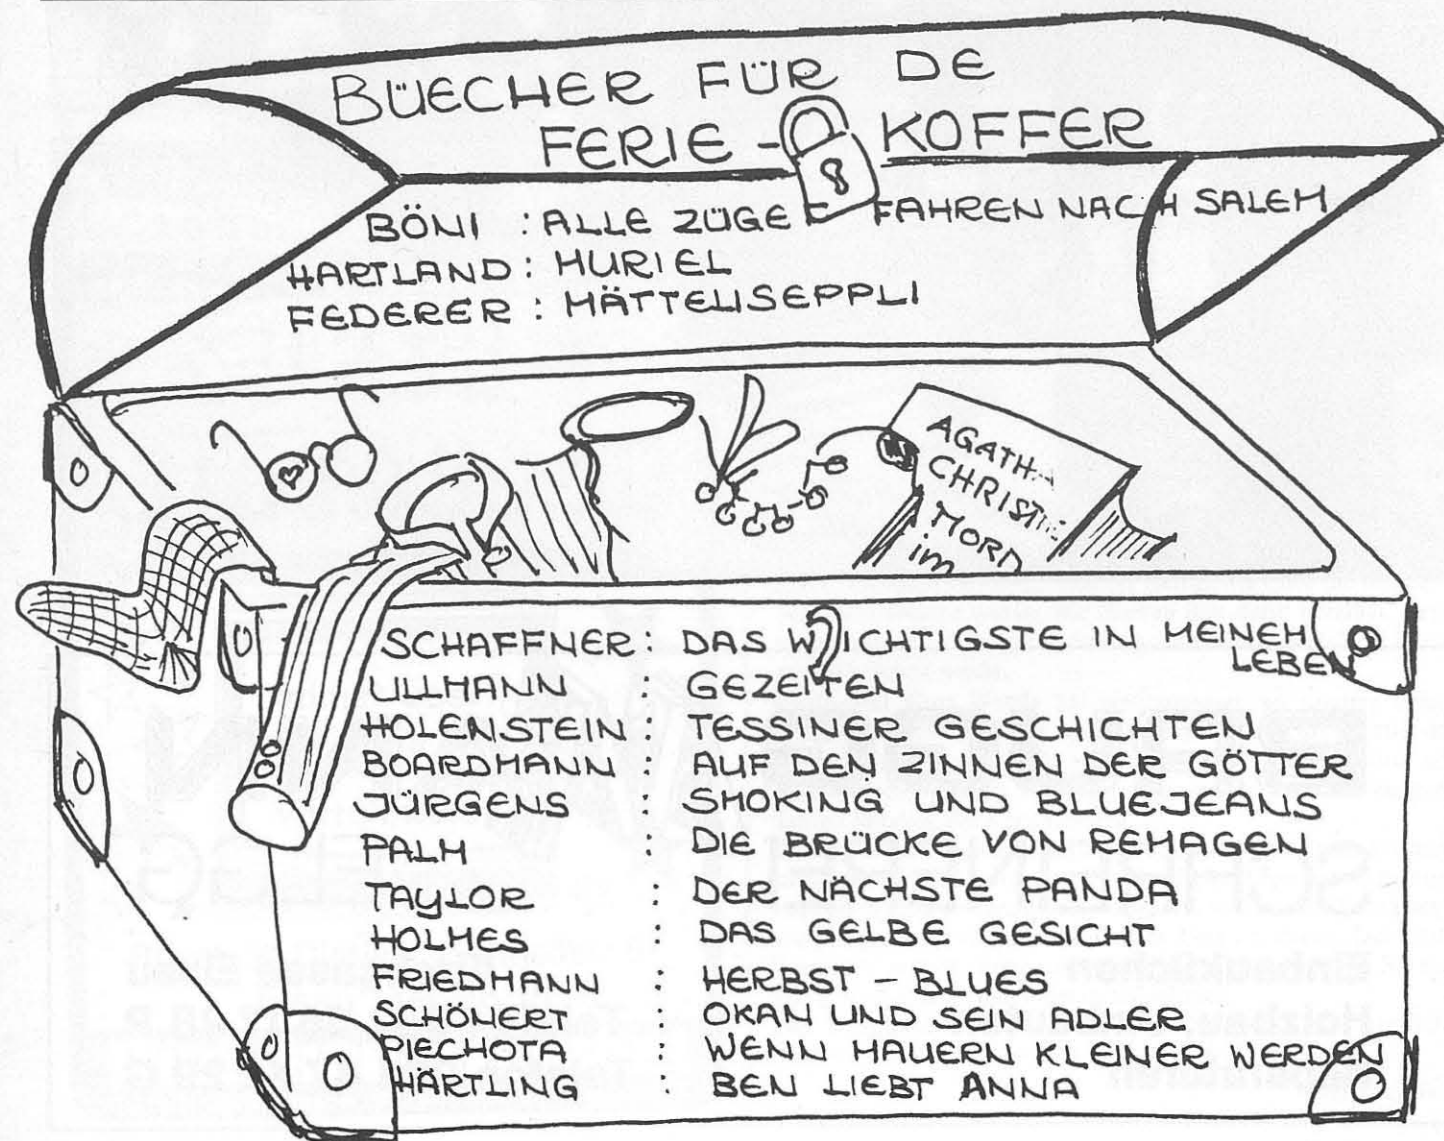 BÜECHER FÜR DE
FERIE - KOFFER
BÖNI : ALLE ZÜGE FAHREN NACH SALEM
HARTLAND : MURIEL
FEDERER : MÄTTELISEPPLI
AGATHA
CHRISTIE
MORD
im
SCHAFFNER : DAS WICHTIGSTE IN MEINEM
LEBEN
ULLMANN : GEZEITEN
HOLENSTEIN : TESSINER GESCHICHTEN
BOARDMANN : AUF DEN ZINNEN DER GÖTTER
JÜRGENS : SMOKING UND BLUEJEANS
PALM : DIE BRÜCKE VON REMAGEN
TAYLOR : DER NÄCHSTE PANDA
HOLMES : DAS GELBE GESICHT
FRIEDMANN : HERBST - BLUES
SCHÖNERT : OKAN UND SEIN ADLER
PIECHOTA : WENN MAUERN KLEINER WERDEN
HÄRTLING : BEN LIEBT ANNA